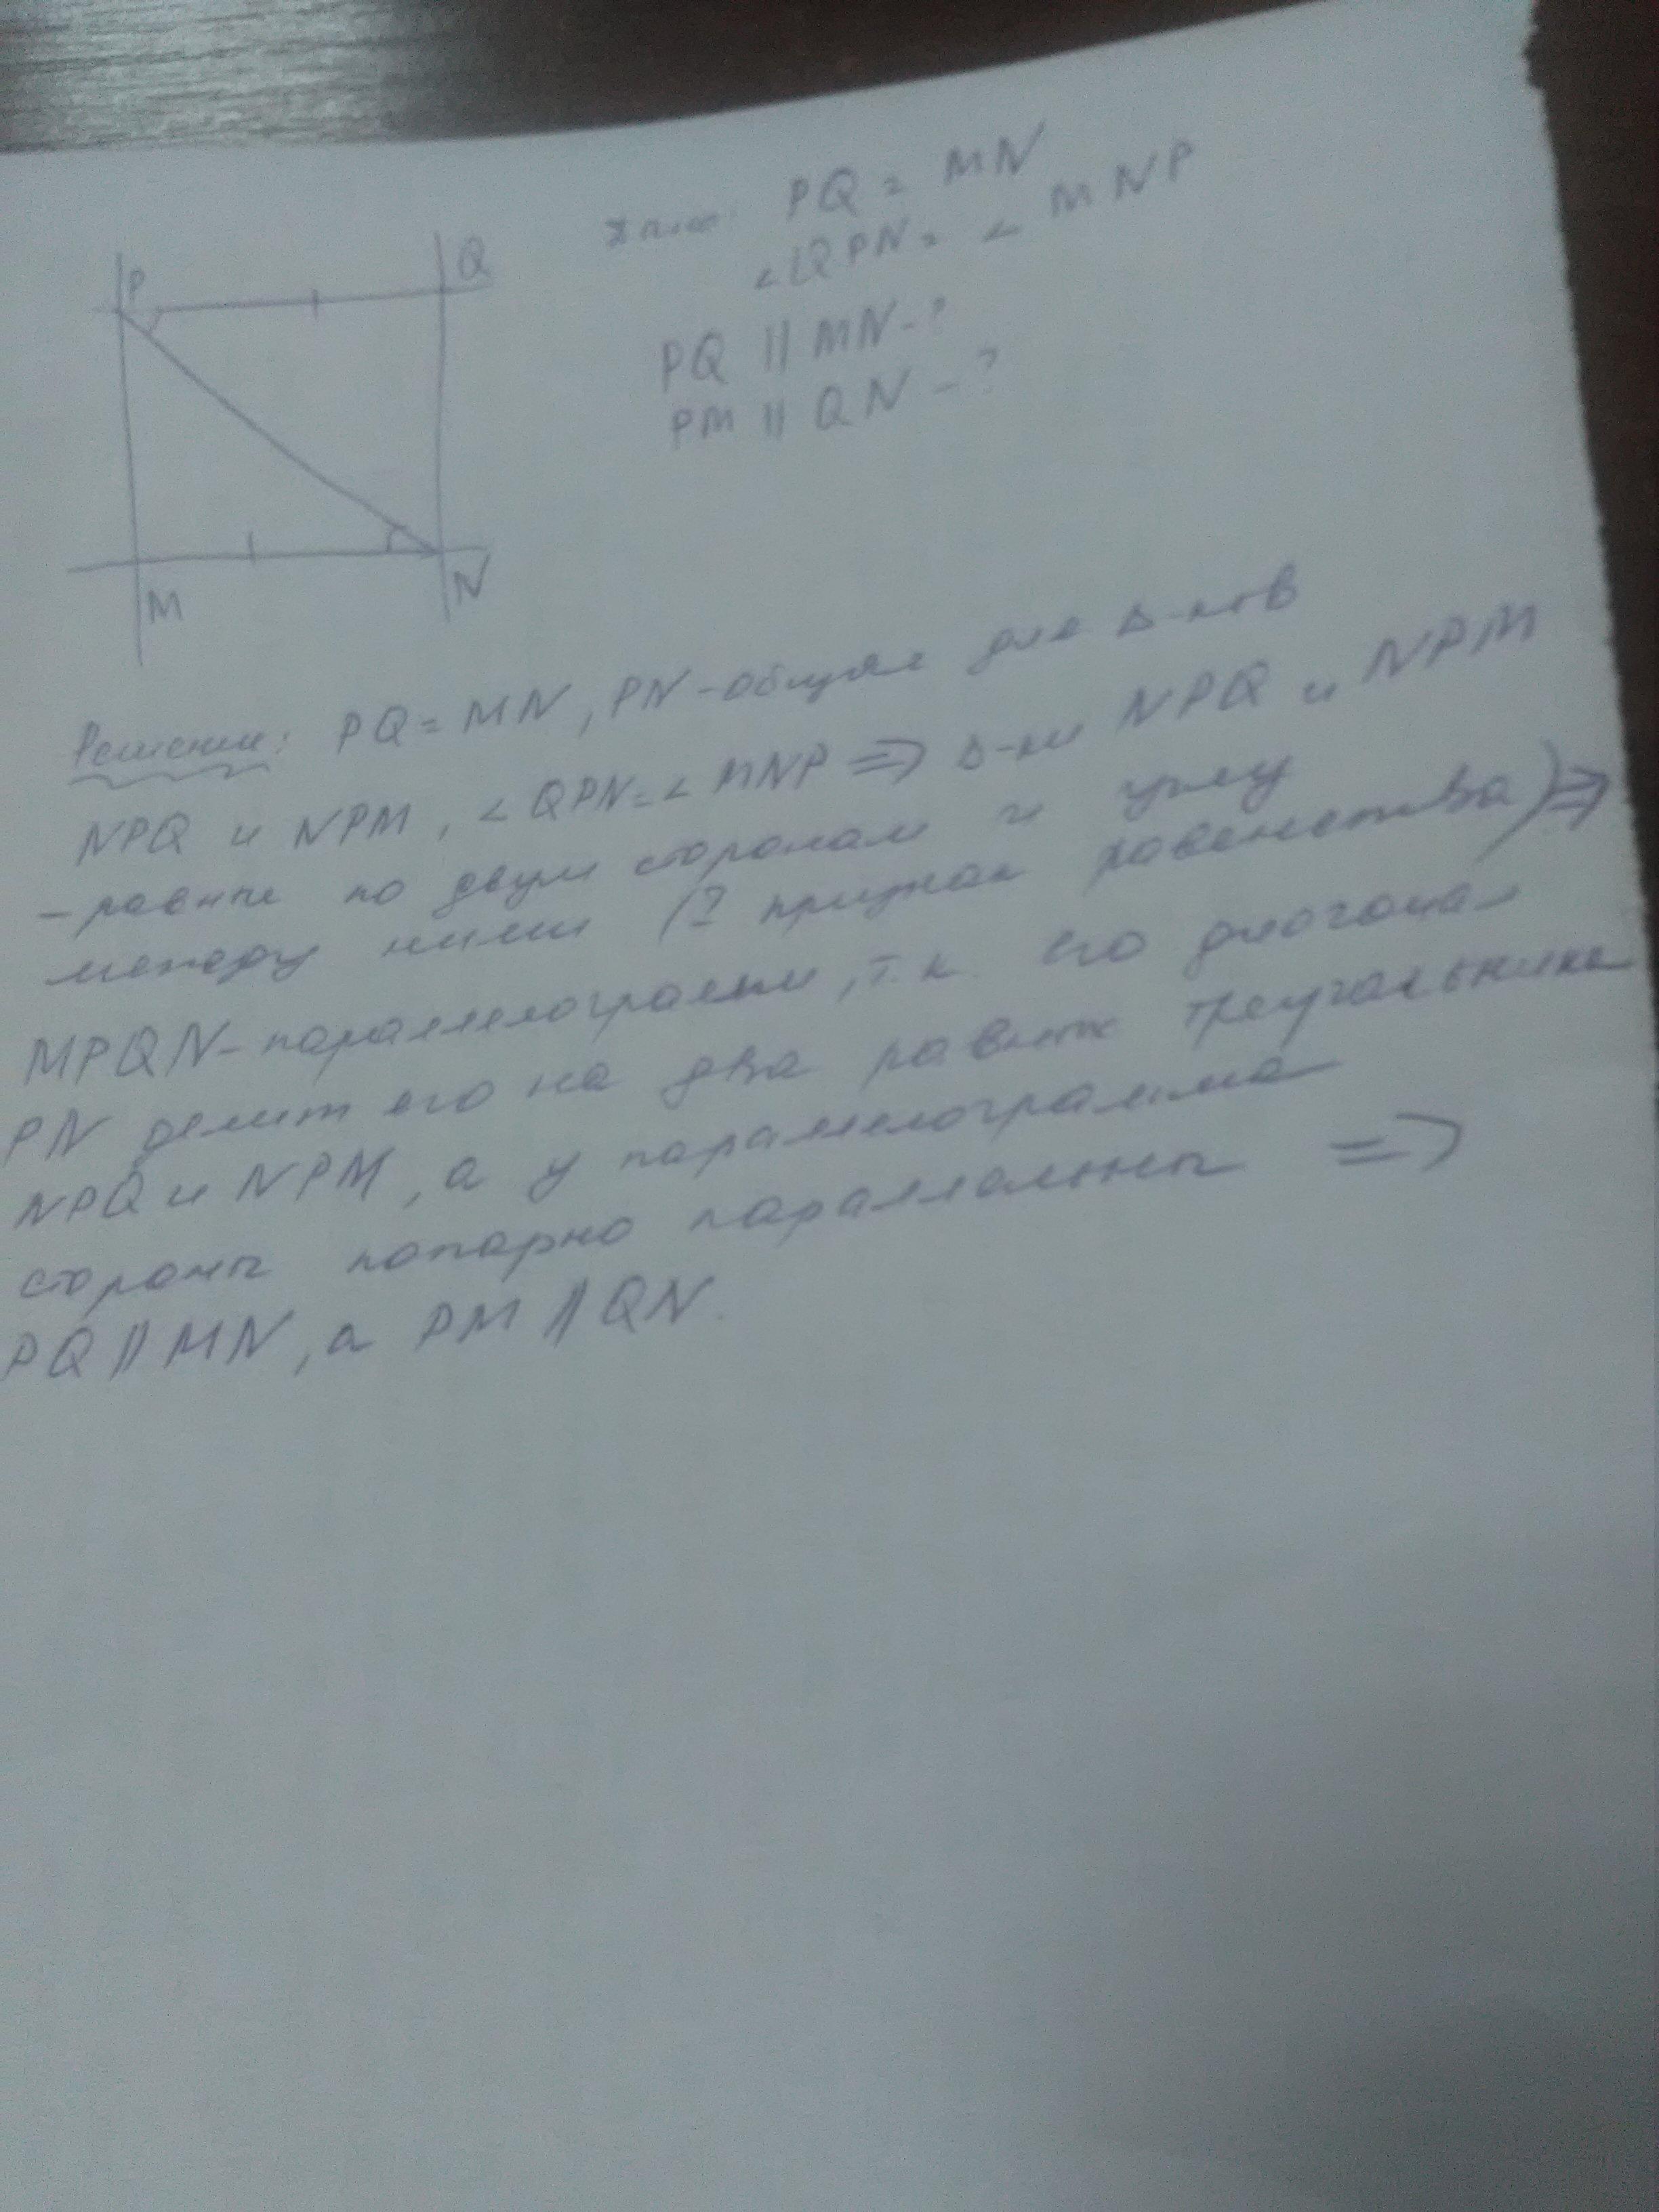 P Q
M N
Дано: PQ = MN
∠QPN = ∠MNP
PQ || MN - ?
PM || QN - ?
Решение: PQ = MN, PN - общая для Δ-ков
NPQ и NPM, ∠QPN = ∠MNP => Δ-ки NPQ и NPM
- равны по двум сторонам и углу
между ними (I признак равенства) =>
MPQN - параллелограмм, т.к. его диагональ
PN делит его на два равных треугольника
NPQ и NPM, а у параллелограмма
стороны попарно параллельны =>
PQ || MN, а PM || QN.